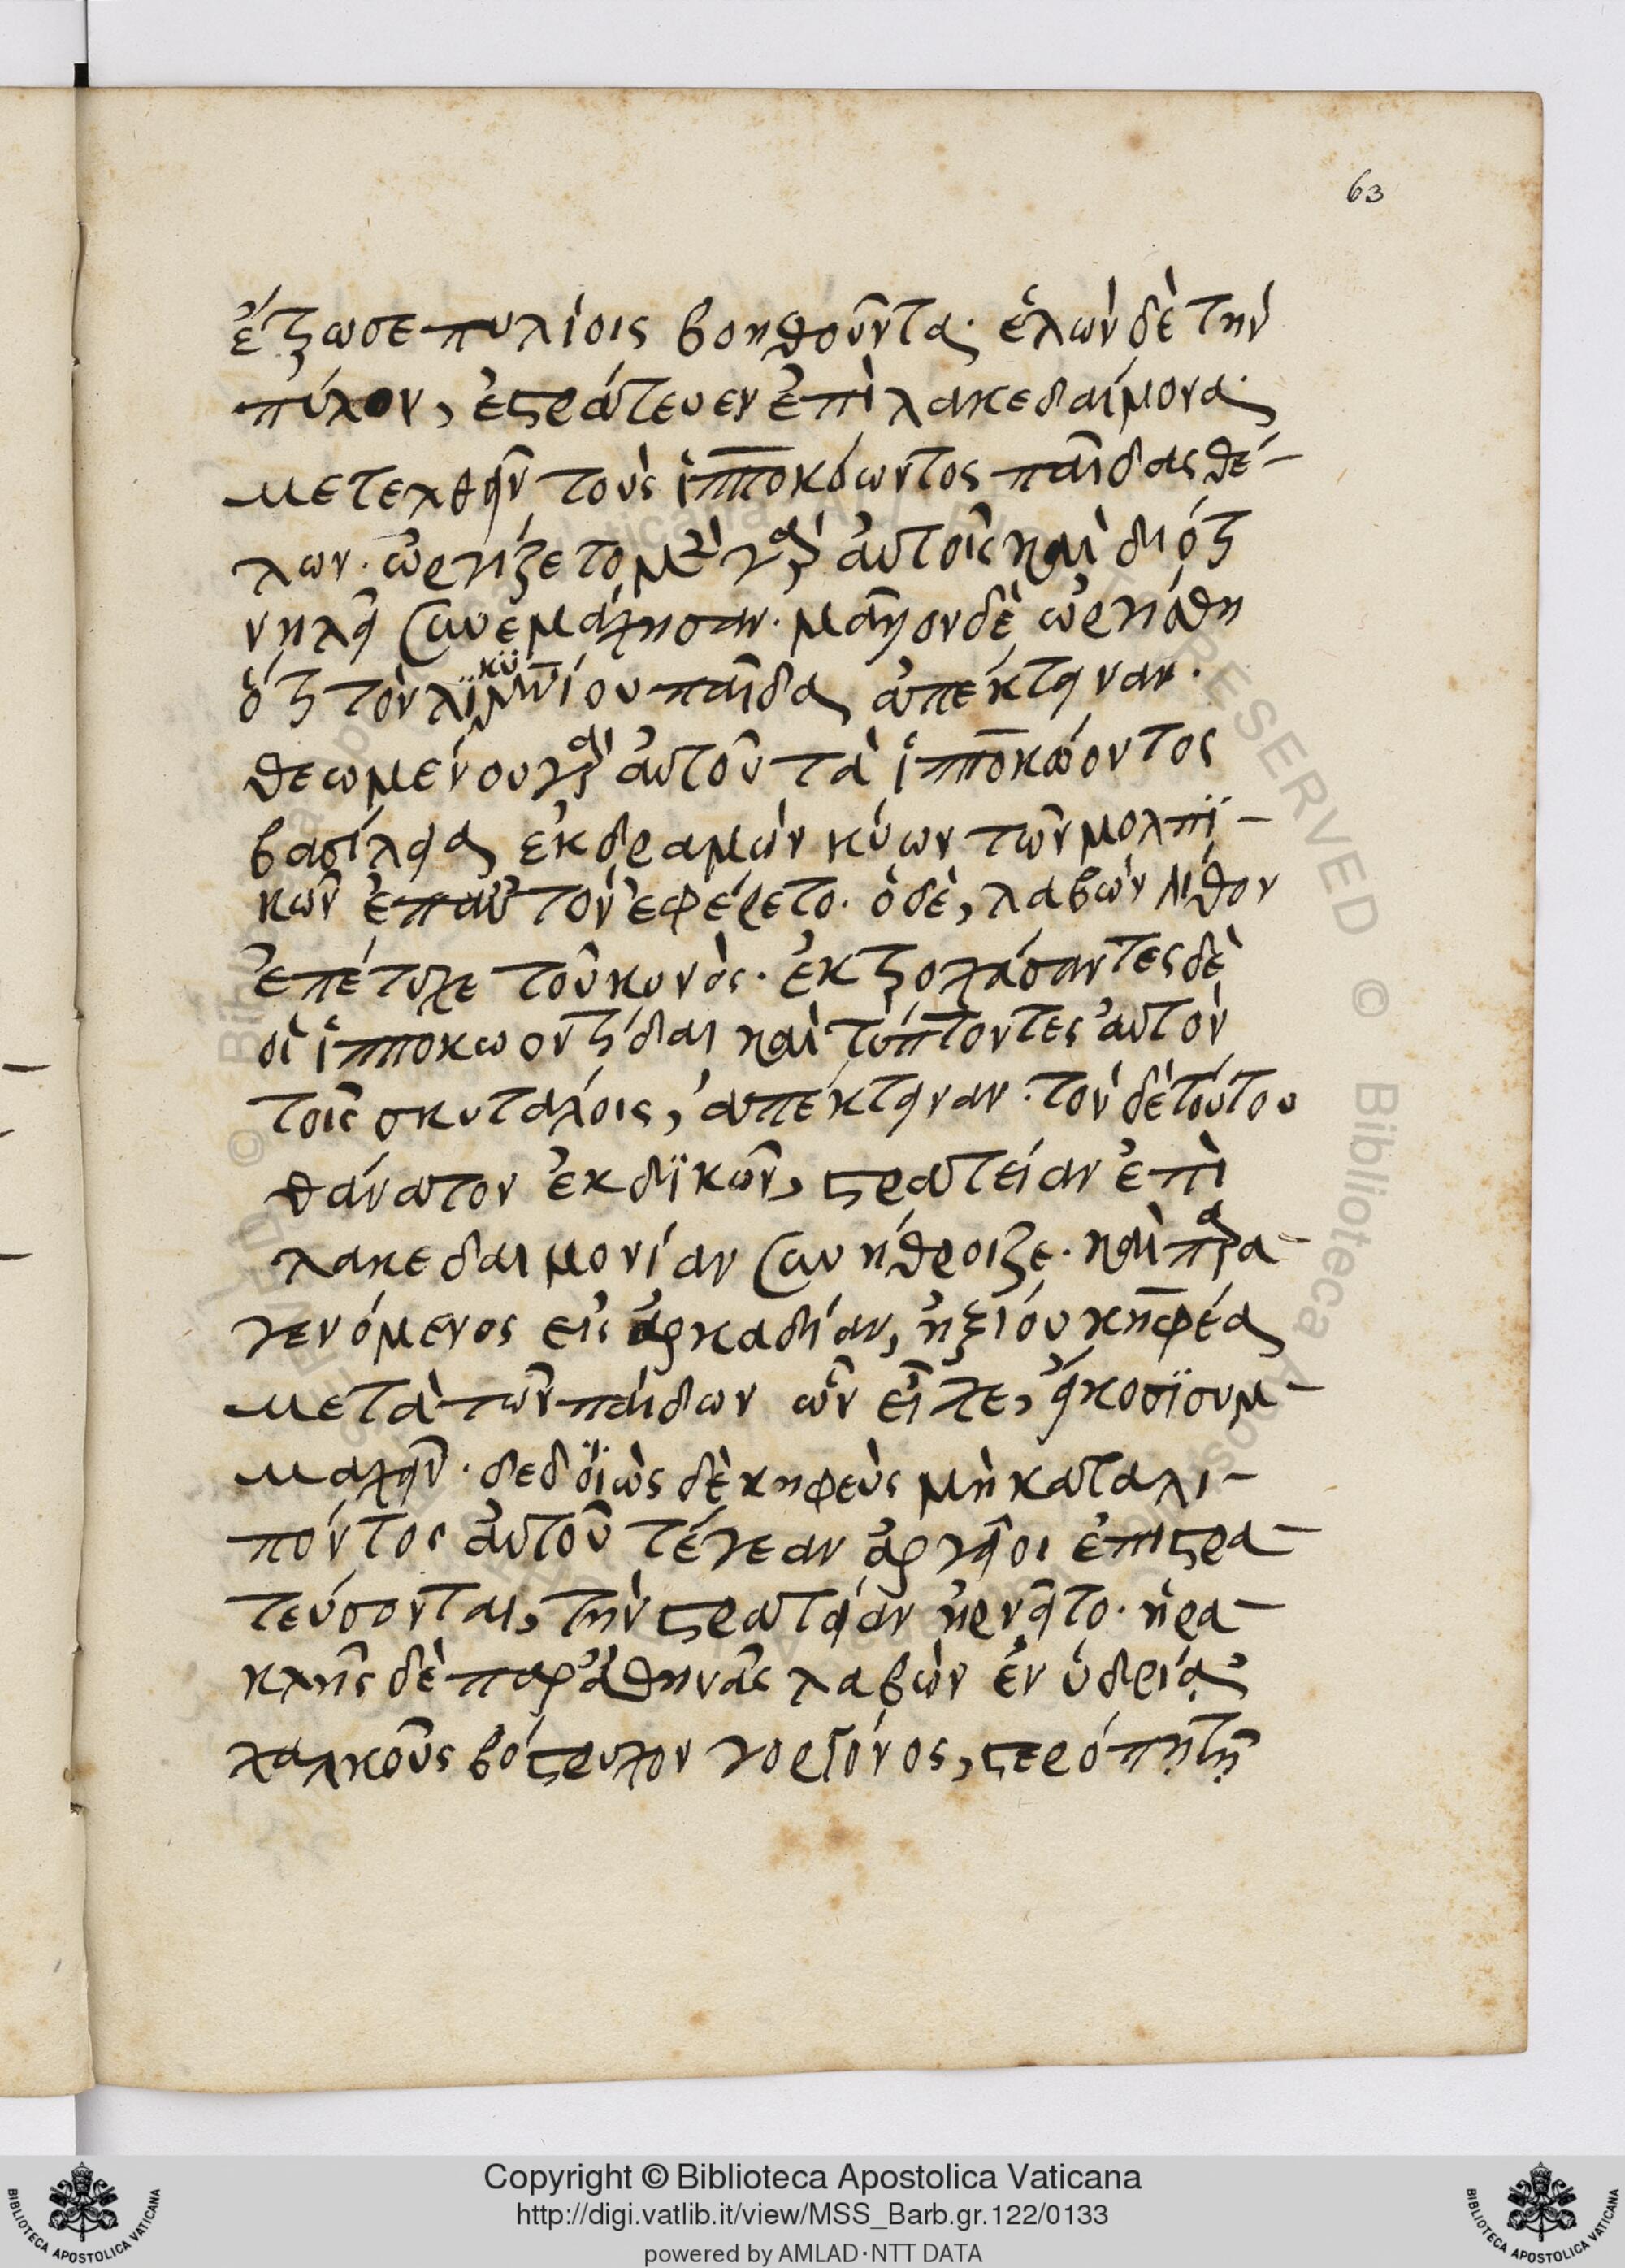 63
ἔτρωσε πυλίοις βοηθοῦντα· ἑλὼν δὲ τὴν
πύλον, ἐστράτευεν ἐπὶ λακεδαίμονα·
μετελθεῖν τοὺς ἱπποκόωντος παῖδας θέ-
λων. ὠργίζετο μὲν γὰρ αὐτοῖς καὶ διότι
νηλεῖ συνεμάχησαν. μᾶλλον δὲ ὠργίσθη
ὅτι τὸν λικϋμνίου παῖδα ἀπέκτειναν.
θεωμένου γὰρ αὐτοῦ τὰ ἱπποκόωντος
βασίλεια ἐκδραμὼν κύων τῶν μολπϊ-
κῶν ἐπ' αὐτὸν ἐφέρετο. ὁ δὲ, λαβὼν λίθον
ἐπέτυχε τοῦ κυνός. ἐκτροχάσαντες δὲ
οἱ ἱπποκωοντίδαι καὶ τύπτοντες αὐτὸν
τοῖς σκυτάλοις, ἀπέκτειναν. τὸν δὲ τούτου
θάνατον ἐκδϊκῶν, στρατείαν ἐπὶ
λακεδαιμονίαν συνήθροιζε. καὶ παρα-
γενόμενος εἰς ἀρκαδίαν, ἠξίου κηφέα
μετὰ τῶν παίδων ὧν εἶχε, εἴκοσϊ συμ-
μαχεῖν. δεδϊὼς δὲ κηφεὺς μὴ καταλι-
πόντος αὐτοῦ τέγεαν ἀργεῖοι ἐπιστρα-
τεύσονται, τὴν στρατείαν ἠρνεῖτο. ἡρα-
κλῆς δὲ παρ' ἀθηνᾶς λαβὼν ἐν ὑδρίᾳ
χαλκοῦς βόστρυχον γοργόνος, στερόπῃ τῇ
Copyright © Biblioteca Apostolica Vaticana
http://digi.vatlib.it/view/MSS_Barb.gr.122/0133
powered by AMLAD·NTT DATA
BIBLIOTECA APOSTOLICA VATICANA
BIBLIOTECA APOSTOLICA VATICANA